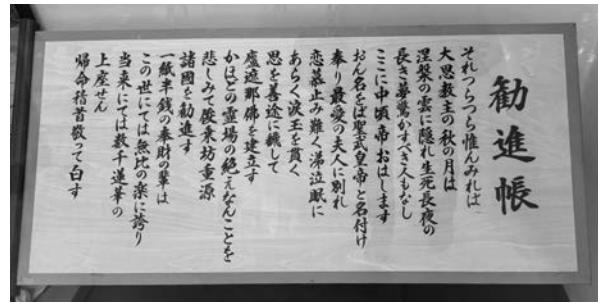 勧進帳
それつらつら惟んみれば
大恩教主の秋の月は
涅槃の雲に隠れ生死長夜の
長き夢驚かすべき人もなし
ここに中頃帝おはします
おん名をば聖武皇帝と名付け
奉り最愛の夫人に別れ
恋慕止み難く涕泣眼に
あらく涙玉を貫く
思を善途に翻して
廬遮那佛を建立す
かほどの霊場の絶えなんことを
悲しみて俊乗坊重源
諸國を勧進す
一紙半銭の奉財の輩は
この世にては無比の楽に誇り
当来にては数千蓮華の
上座せん
帰命稽首敬って白す